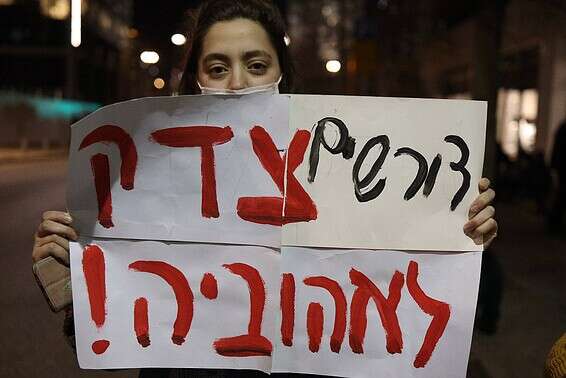 דורשים צדק
לאהוביה!